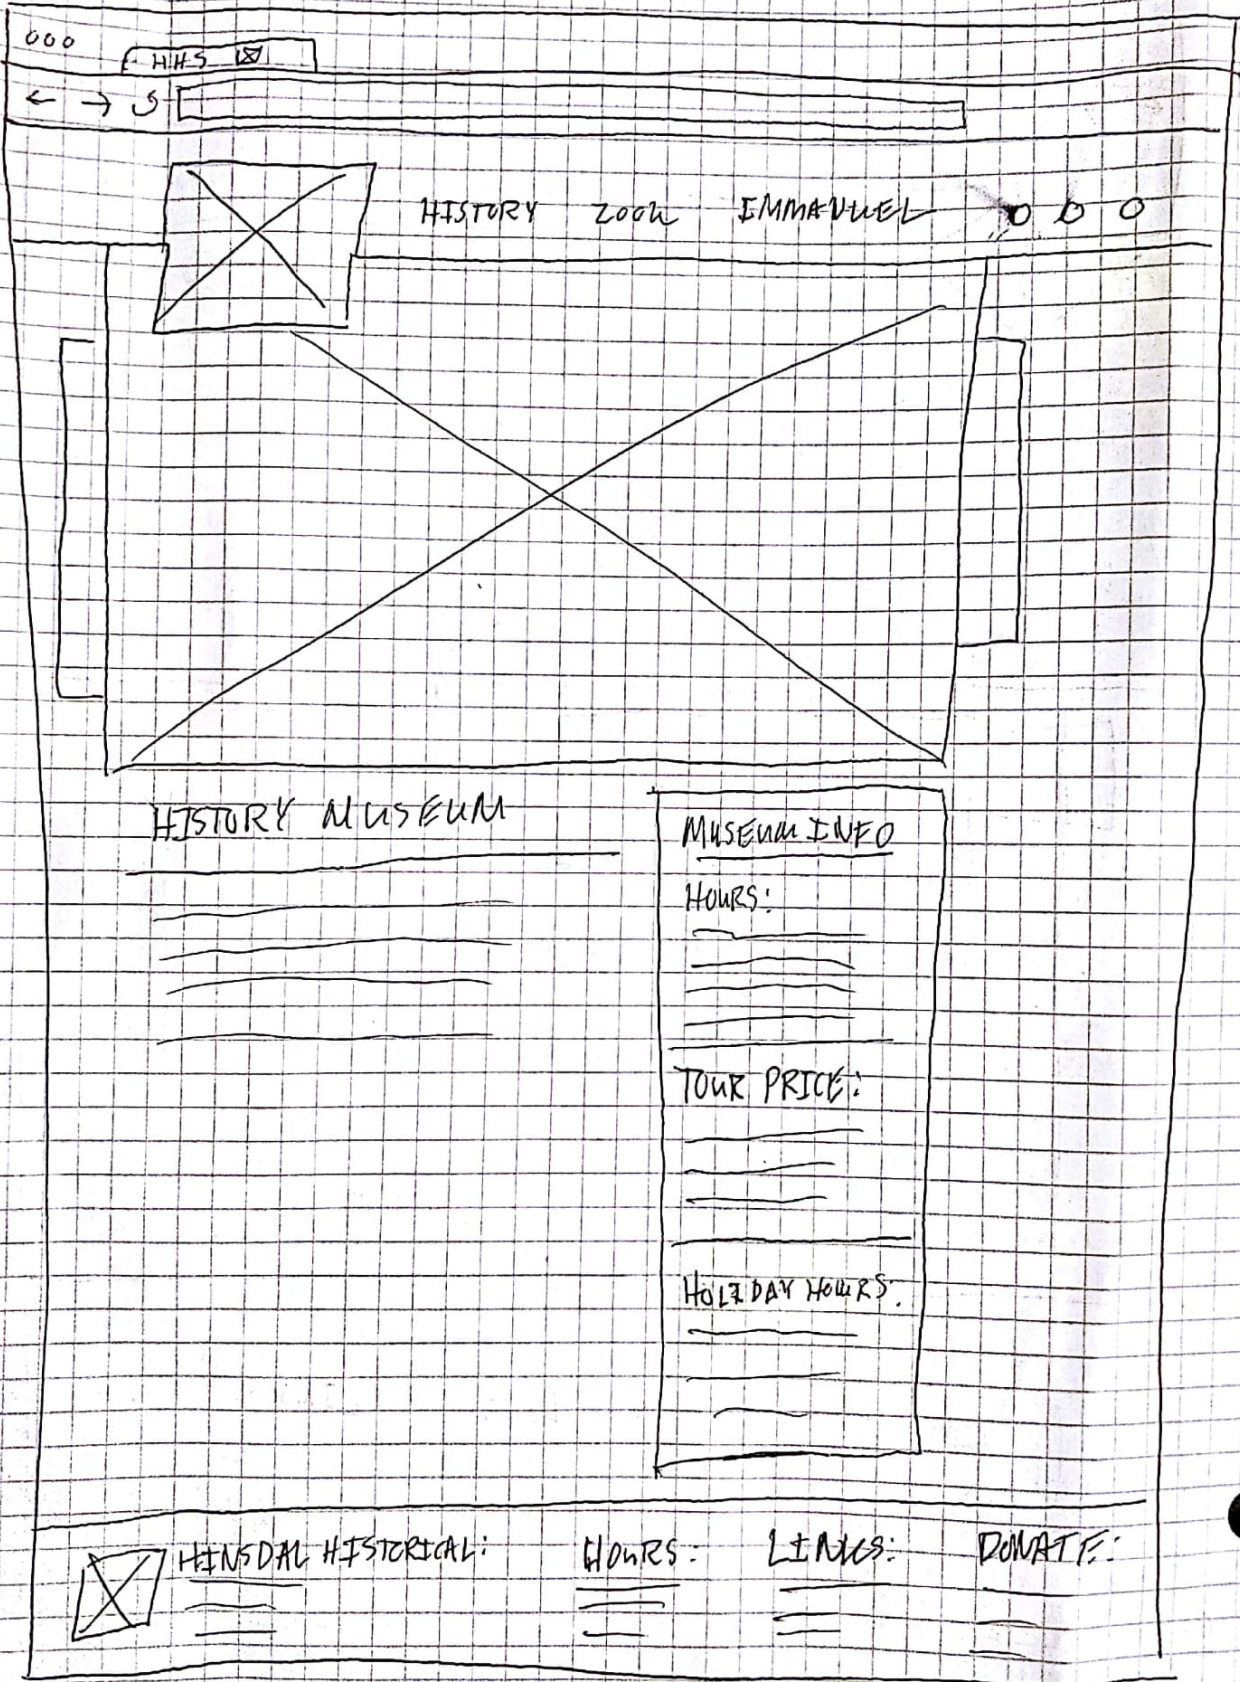 HHS
HISTORY ZOOK IMMANUEL
HISTORY MUSEUM
MUSEUM INFO
HOURS:
TOUR PRICE:
HOLIDAY HOURS:
HINSDAL HISTORICAL:
HOURS:
LINKS:
DONATE: